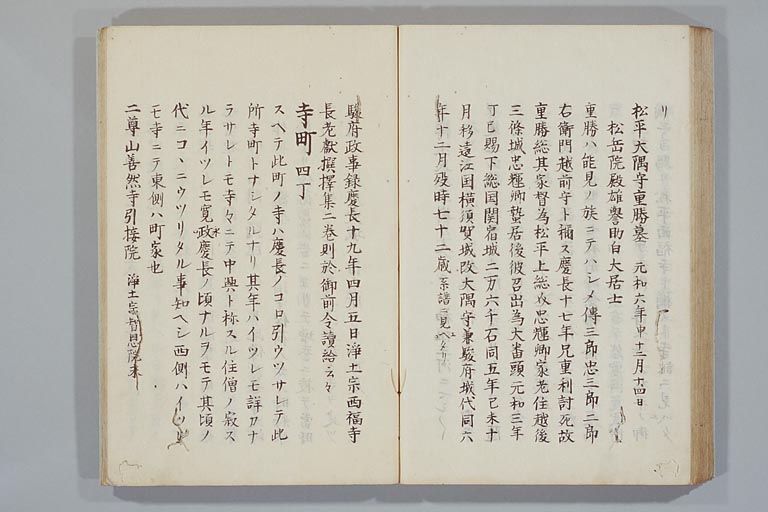 リ
松平大隅守重勝墓 元和六年申十二月十四日
松岳院殿雄誉助白大居士
重勝ハ能見ノ族ニテハシメ傳三郎忠三郎二郎
右衛門越前守ト稱ス慶長十七年兄重利討死故
重勝総其家督為松平上総介忠輝卿家老住越後
三條城忠輝卿蟄居後彼召出為大番頭元和三年
丁巳賜下総国関宿城二万六千石同五年己未十
月移遠江国横須賀城改大隅守兼駿府城代同六
年十二月殁時七十二歳系譜ニ見ヘタリ
駿府政事錄慶長十九年四月五日浄土宗西福寺
長老獻撰擇集二巻則於御前令讀給云々
寺町 四丁
スヘテ此町ノ寺ハ慶長ノコロ引ウツサレテ此
所寺町トナシタルナリ其年ハイツレモ詳カナ
ラサレトモ寺々ニテ中興ト称スル住僧ノ寂ス
ル年イツレモ寛政慶長ノ頃ナルヲモテ其頃ノ
代ニコヽニウツリタル事知ヘシ西側ハイツレ
モ寺ニテ東側ハ町家也
二尊山善然寺引接院 浄土宗智恩院末